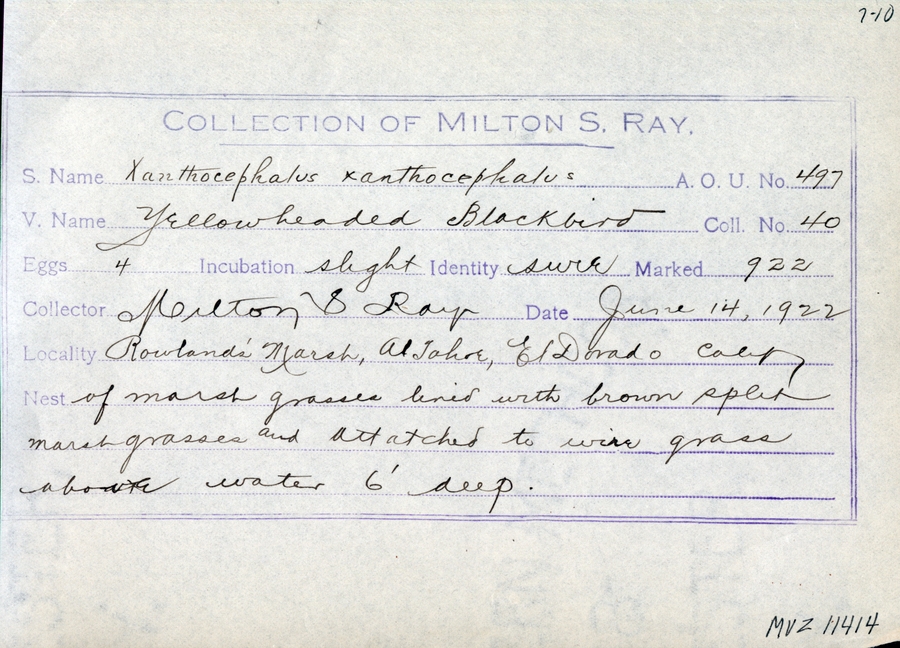 7-10
COLLECTION OF MILTON S. RAY.
S. Name Xanthocephalus xanthocephalus A. O. U. No. 497
V. Name Yellowheaded Blackbird Coll. No. 40
Eggs 4 Incubation slight Identity sure Marked 922
Collector Milton S Ray Date June 14, 1922
Locality Rowlands' Marsh, Al Tahoe, El Dorado Calif
Nest of marsh grasses lined with brown split
marsh grasses and attatched to wire grass
above water 6' deep.
MVZ 11414